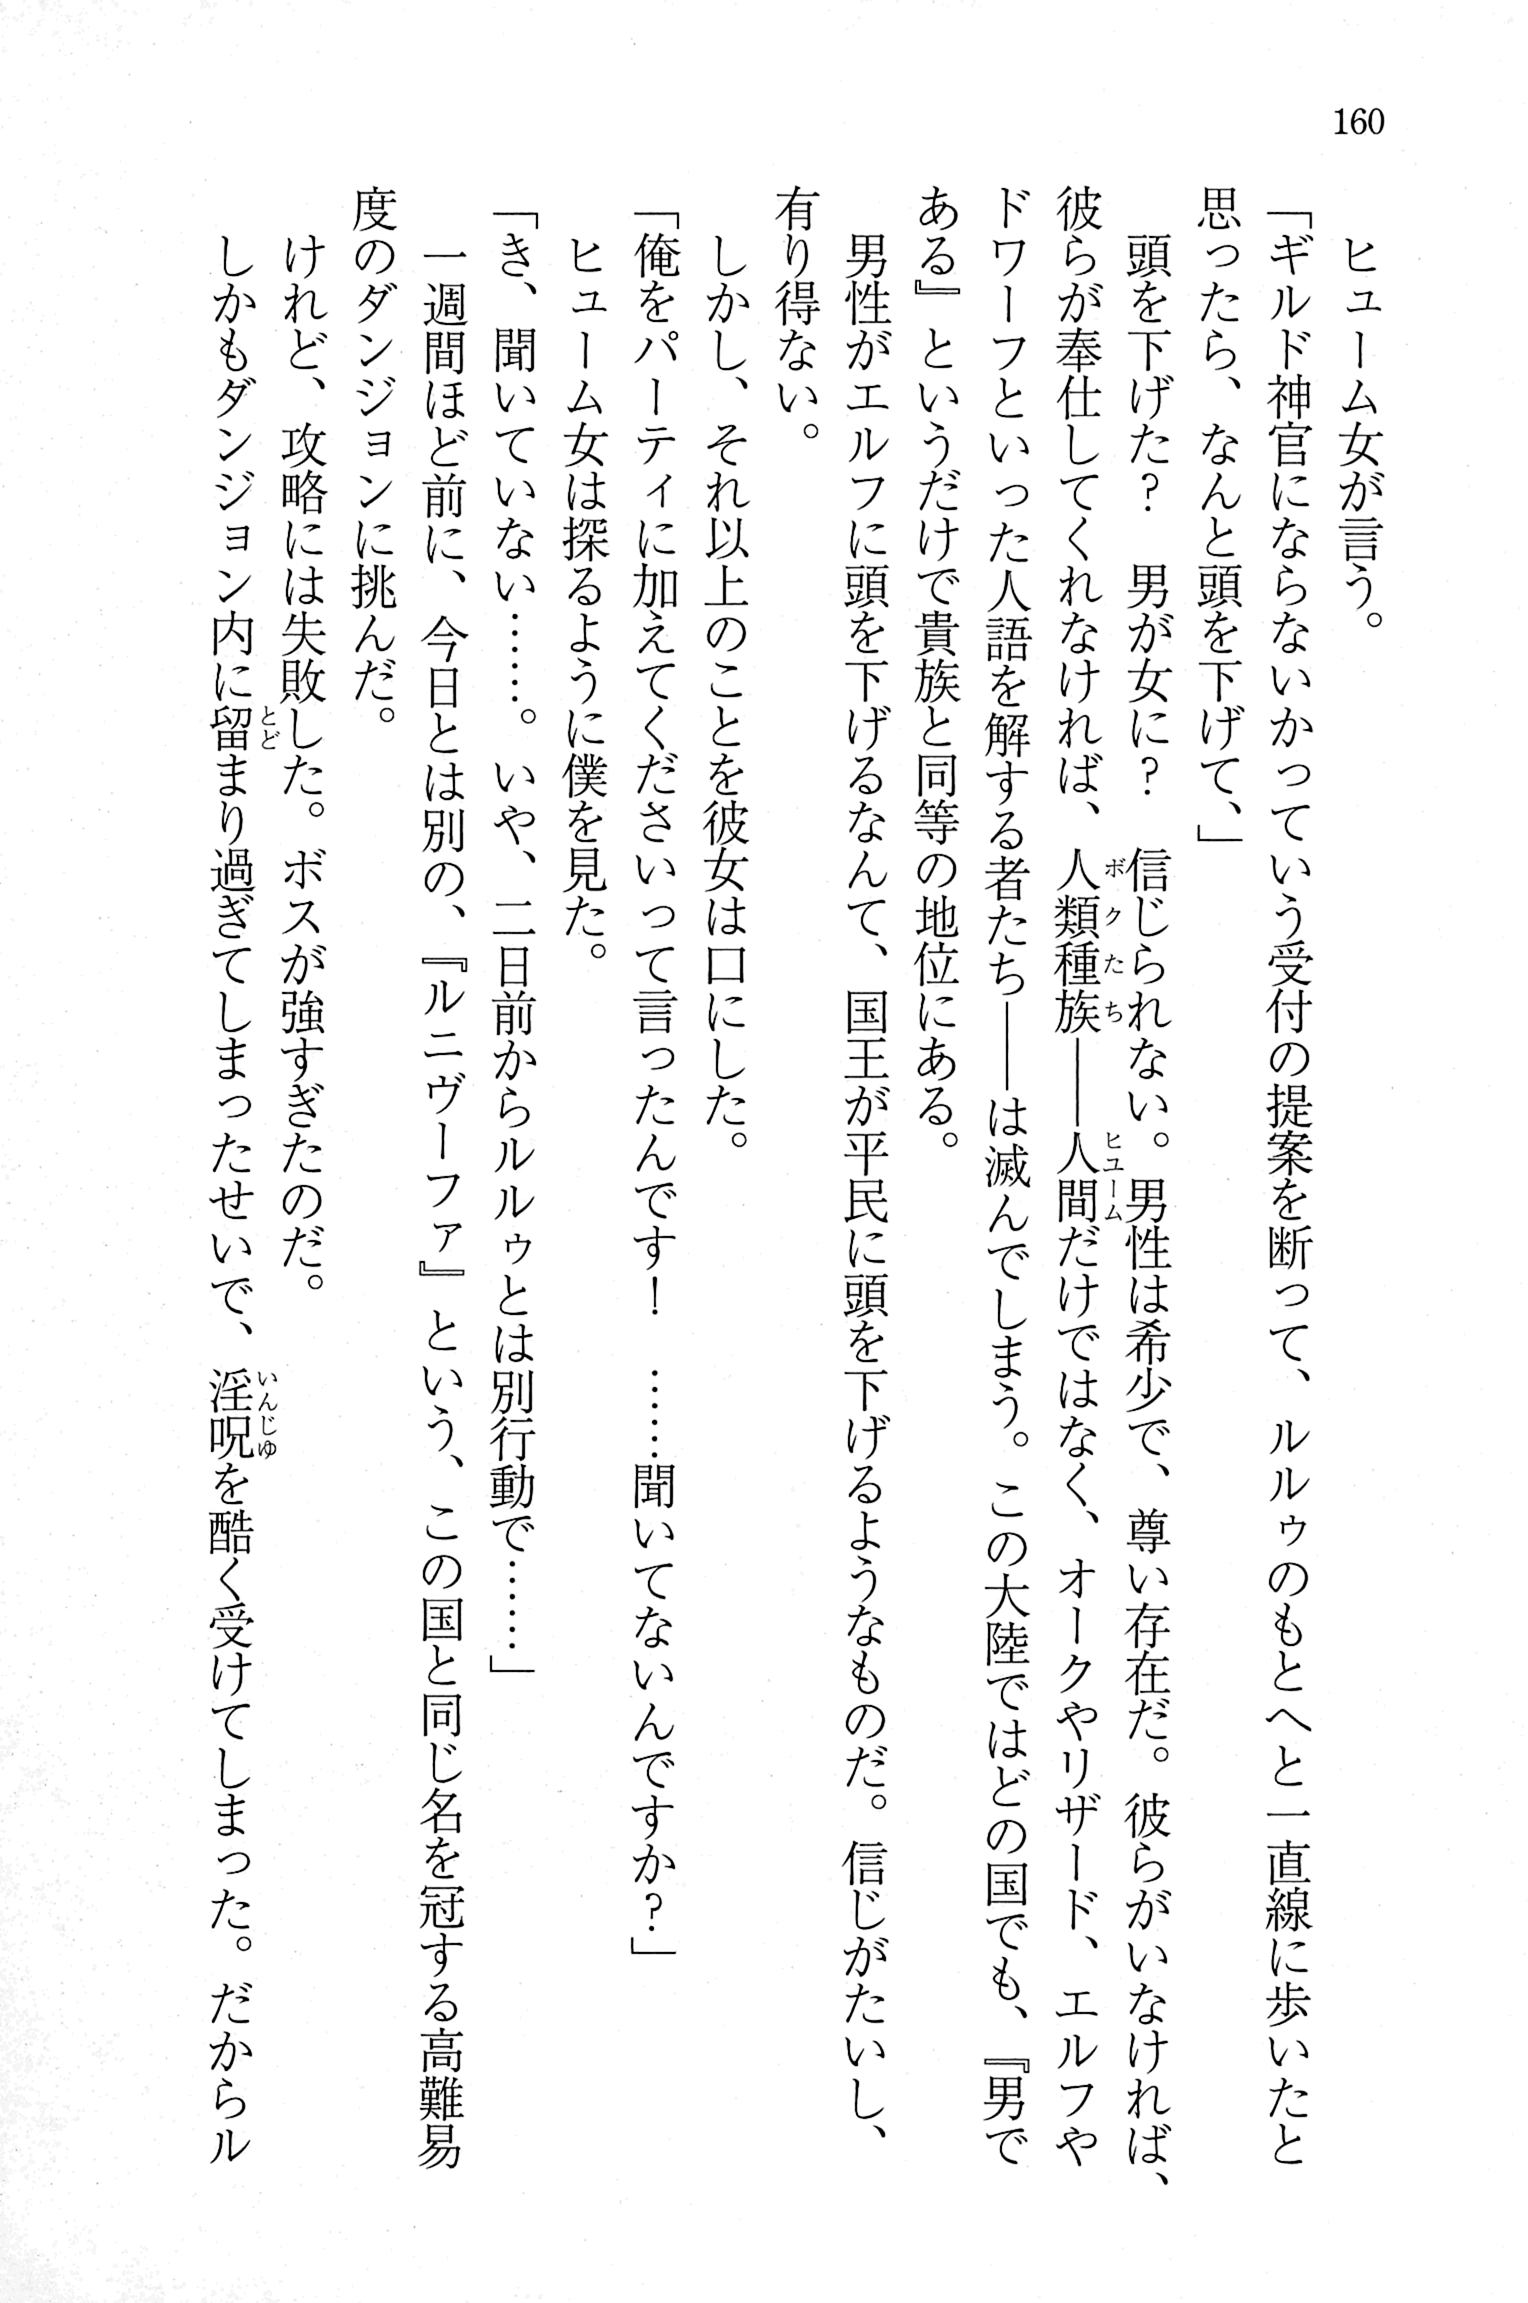 160
　ヒューム女が言う。
「ギルド神官にならないかっていう受付の提案を断って、ルルゥのもとへと一直線に歩いたと
思ったら、なんと頭を下げて、」
　頭を下げた？　男が女に？　信じられない。男性は希少で、尊い存在だ。彼らがいなければ、
彼らが奉仕してくれなければ、人類種族――人間だけではなく、オークやリザード、エルフや
ボクたち
ヒューム
ドワーフといった人語を解する者たち――は滅んでしまう。この大陸ではどの国でも、『男で
ある』というだけで貴族と同等の地位にある。
　男性がエルフに頭を下げるなんて、国王が平民に頭を下げるようなものだ。信じがたいし、
有り得ない。
　しかし、それ以上のことを彼女は口にした。
「俺をパーティに加えてくださいって言ったんです！　……聞いてないんですか？」
　ヒューム女は探るように僕を見た。
「き、聞いていない……。いや、二日前からルルゥとは別行動で……」
　一週間ほど前に、今日とは別の、『ルニヴーファ』という、この国と同じ名を冠する高難易
度のダンジョンに挑んだ。
　けれど、攻略には失敗した。ボスが強すぎたのだ。
　しかもダンジョン内に留まり過ぎてしまったせいで、淫呪を酷く受けてしまった。だからル
とど
いんじゆ